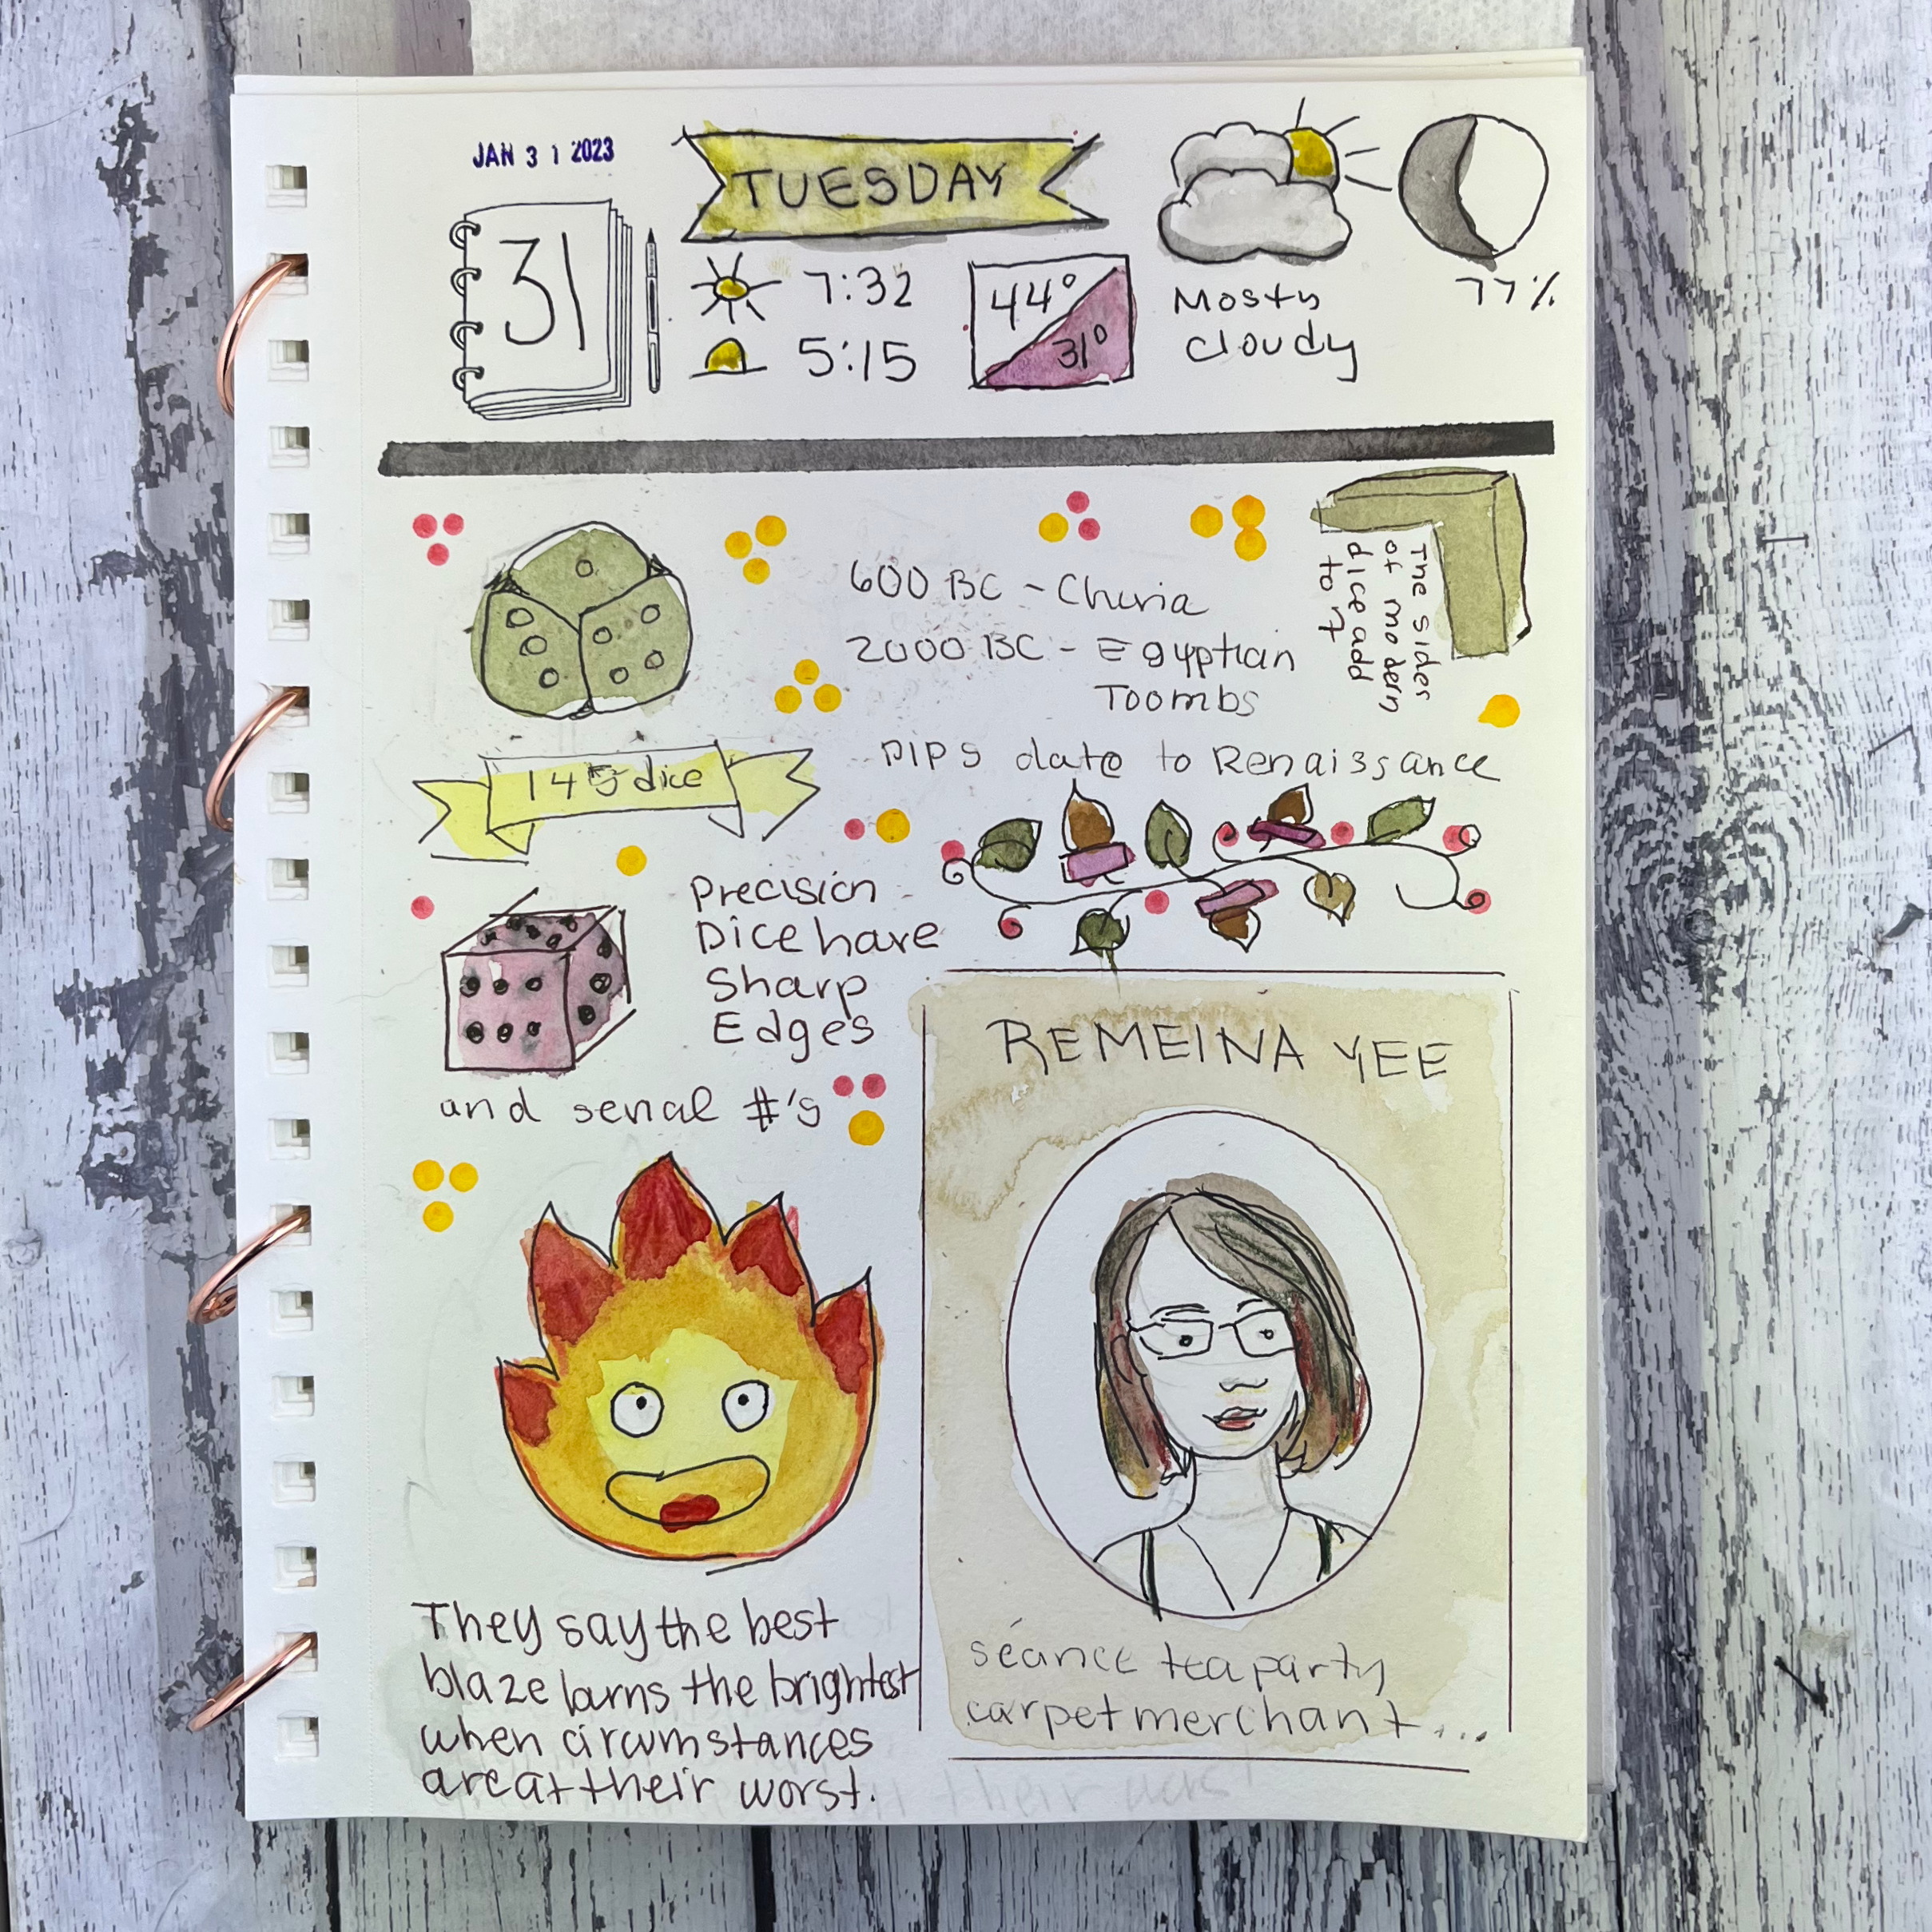 JAN 31 2023
TUESDAY
31
7:32
5:15
44°
31°
Mosty
cloudy
77%
600 BC - China
2000 BC - Egyptian
Toombs
The sides
of modern
dice add
to 7
PIPS date to Renaissance
145 dice
Precision
Dice have
Sharp
Edges
and serial #'s
REMEINA YEE
séance tea party
carpet merchant...
They say the best
blaze burns the brightest
when circumstances
are at their worst.